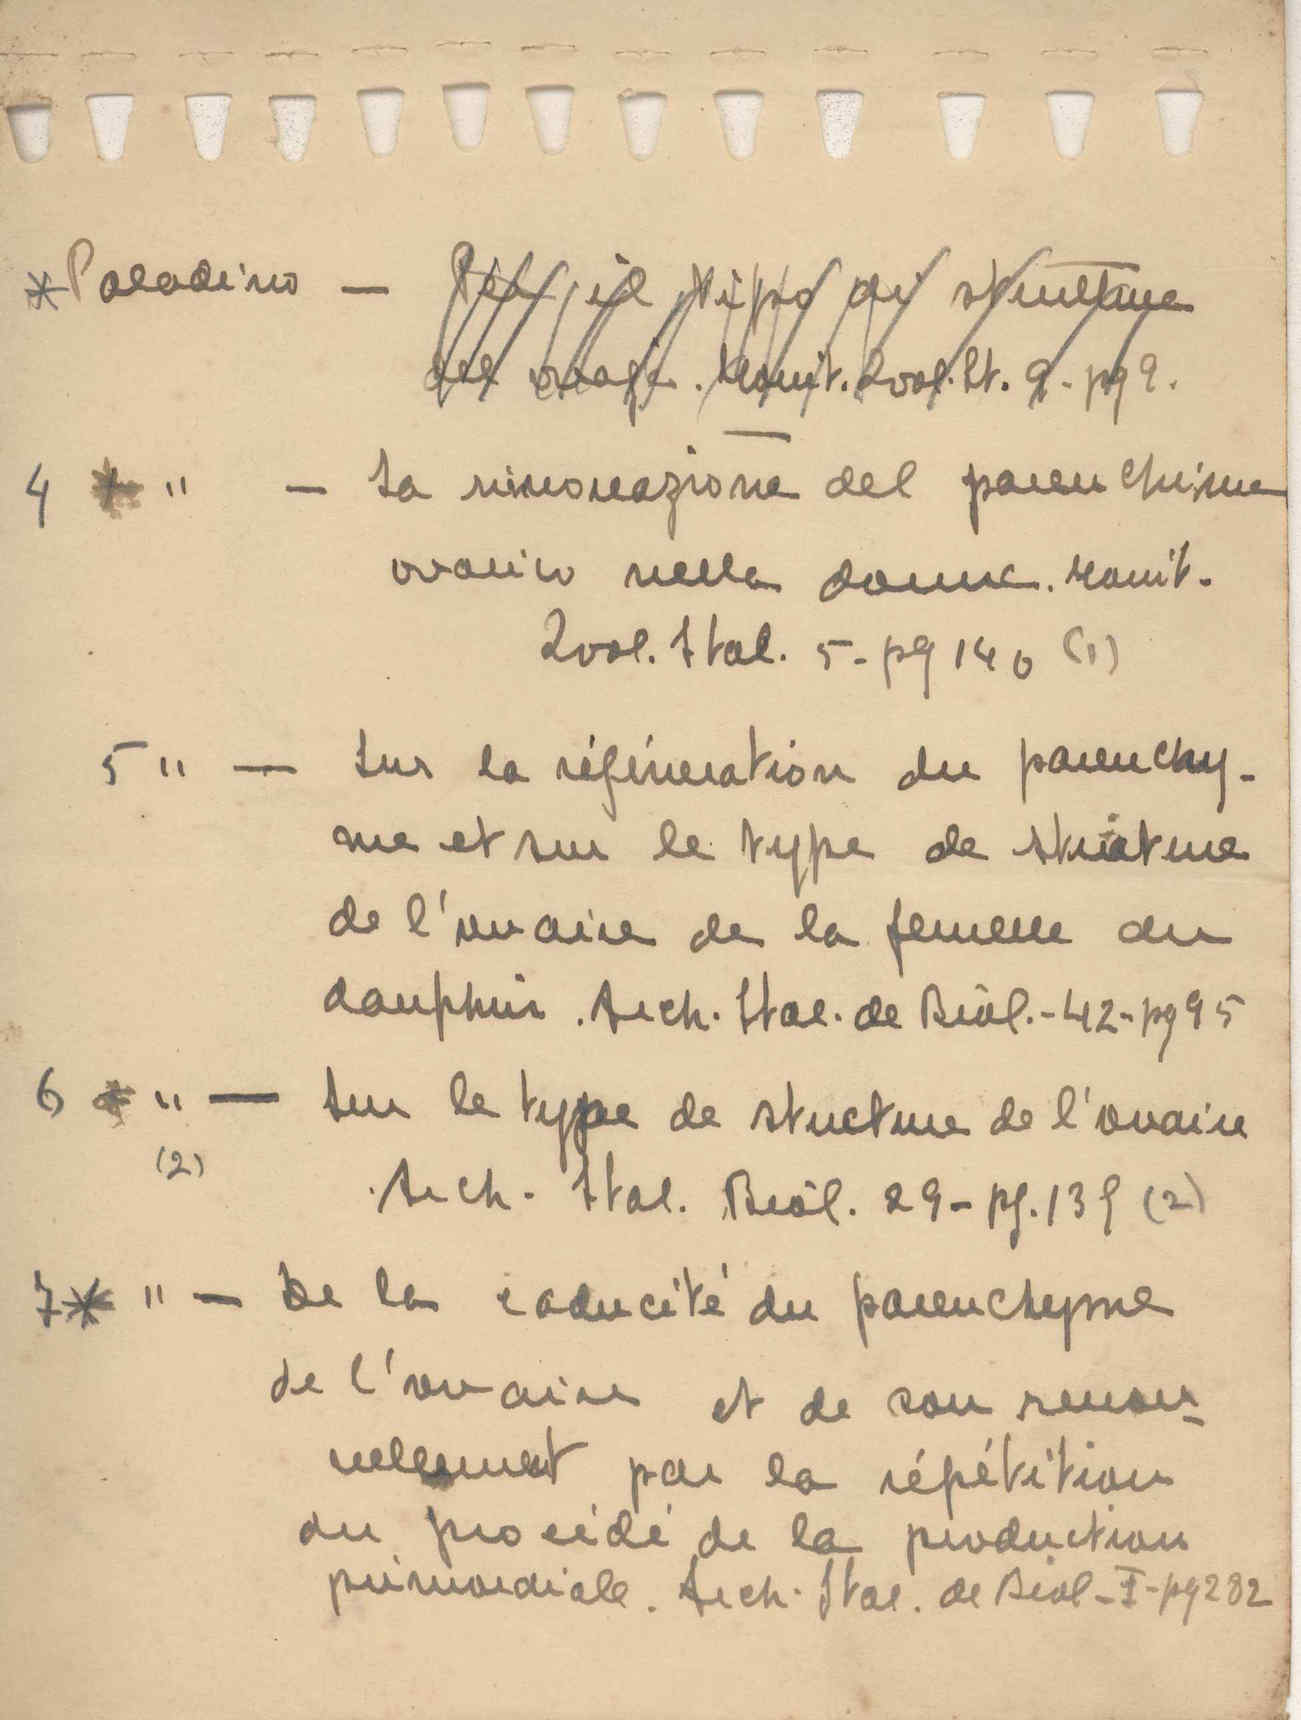 * Paladino — Per il tipo di struttura
dell ovaja. Monit. Zool. It. 9 - pg 9.
4 * " — La rinnovazione del parenchima
ovarico nella donna. Monit.
Zool. Ital. 5 - pg 140 (1)
5 " — Sur la régéneration du parenchy-
me et sur le type de structure
de l'ovaire de la femelle du
dauphin. Arch. Ital. de Biol. - 42 - pg 95
6 * " — Sur le type de structure de l'ovaire
(2)
Arch. Ital. Biol. 29 - pg. 139 (2)
7 * " — De la caducité du parenchyme
de l'ovaire et de son renou-
vellement par la répétition
du procédé de la production
primordiale. Arch. Ital. de Biol - I - pg 282